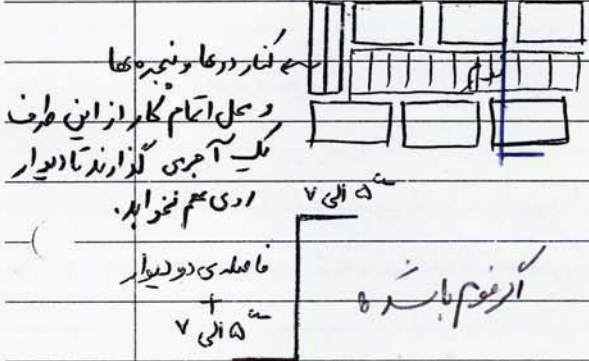 کنار درها و پنجره ها
و محل اتمام کار از این طرف
یک آجری گذارند تا دیوار
روی هم نخوابد.
فوم
۵ الی ۷ سانت
فاصله‌ی دو دیوار
+
۵ الی ۷ سانت
اگر فوم باشد ۵